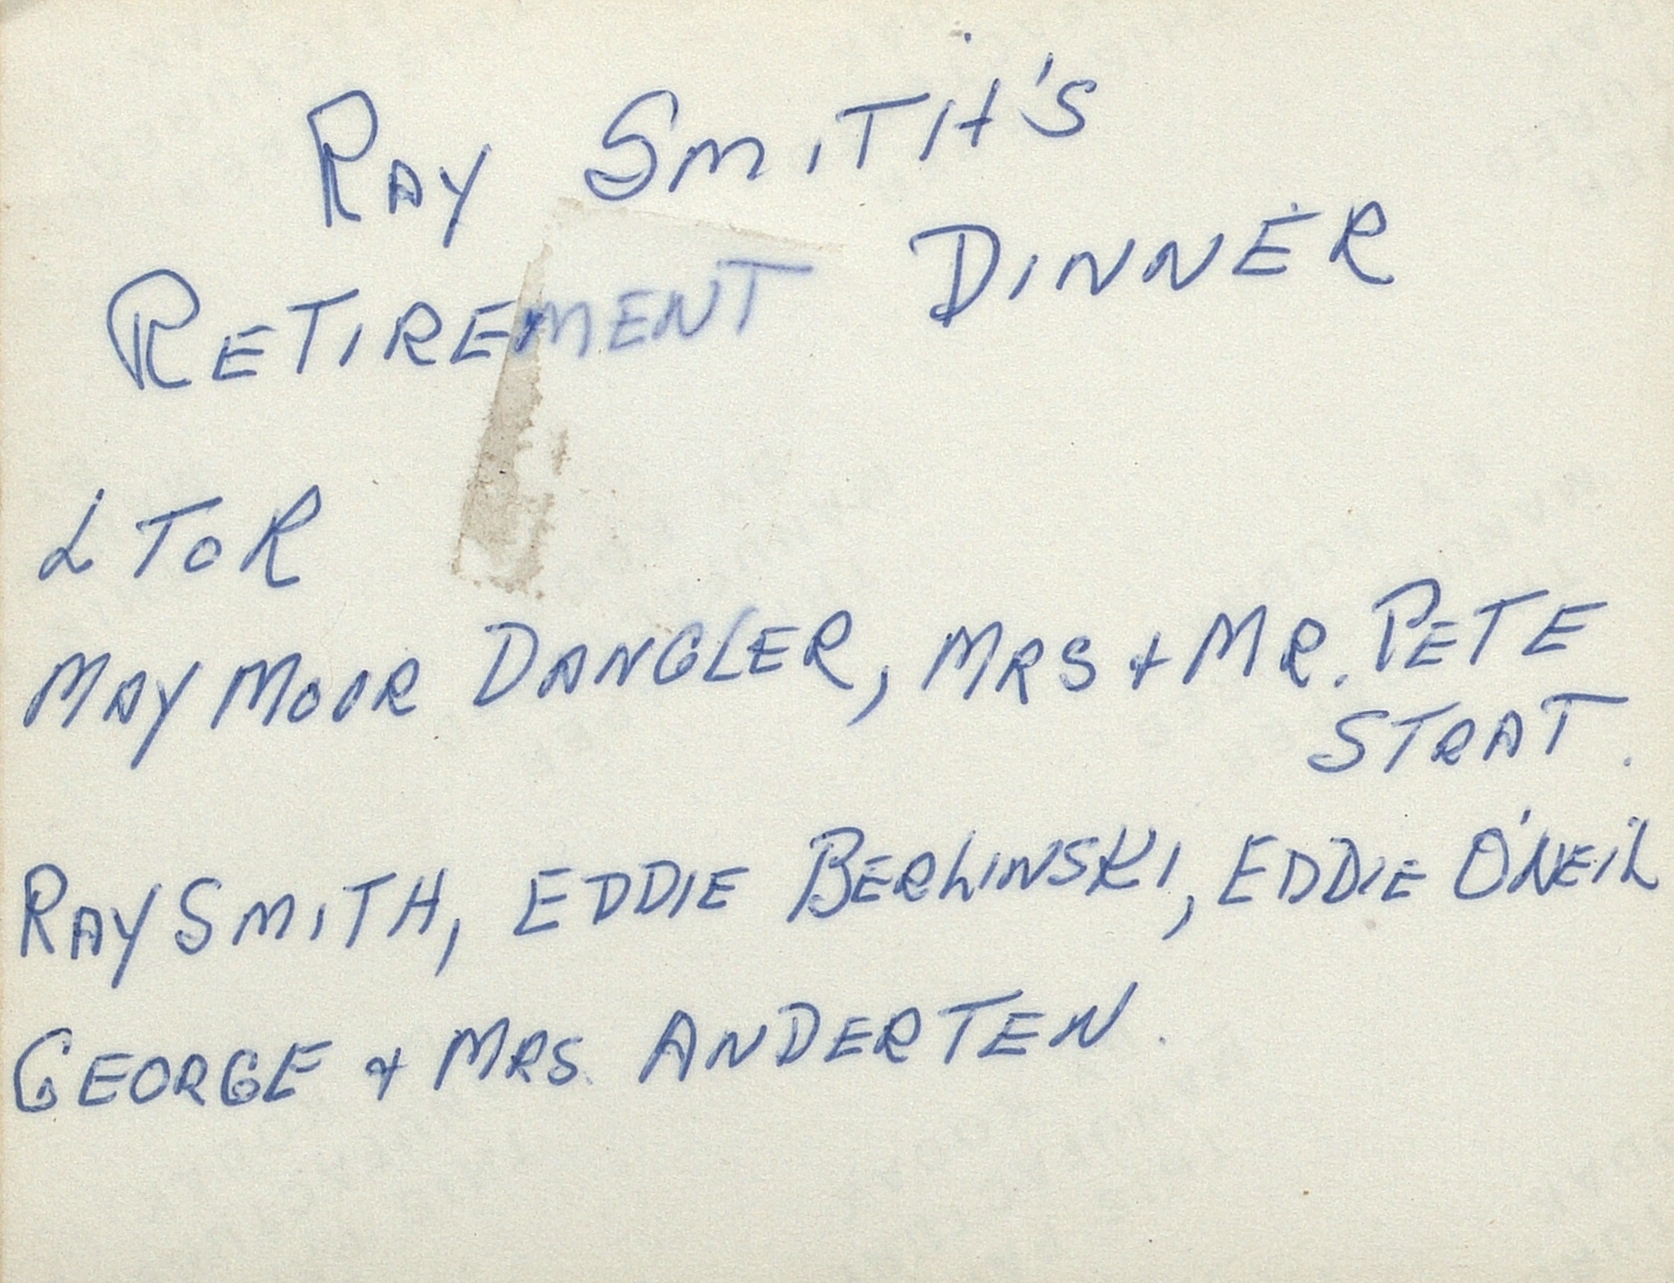 RAY SMITH'S
RETIREMENT DINNER
L TO R
MAY MOOR DANGLER, MRS + MR. PETE
STRAT.
RAY SMITH, EDDIE BERLINSKI, EDDIE O'NEIL
GEORGE + MRS. ANDERTEN.